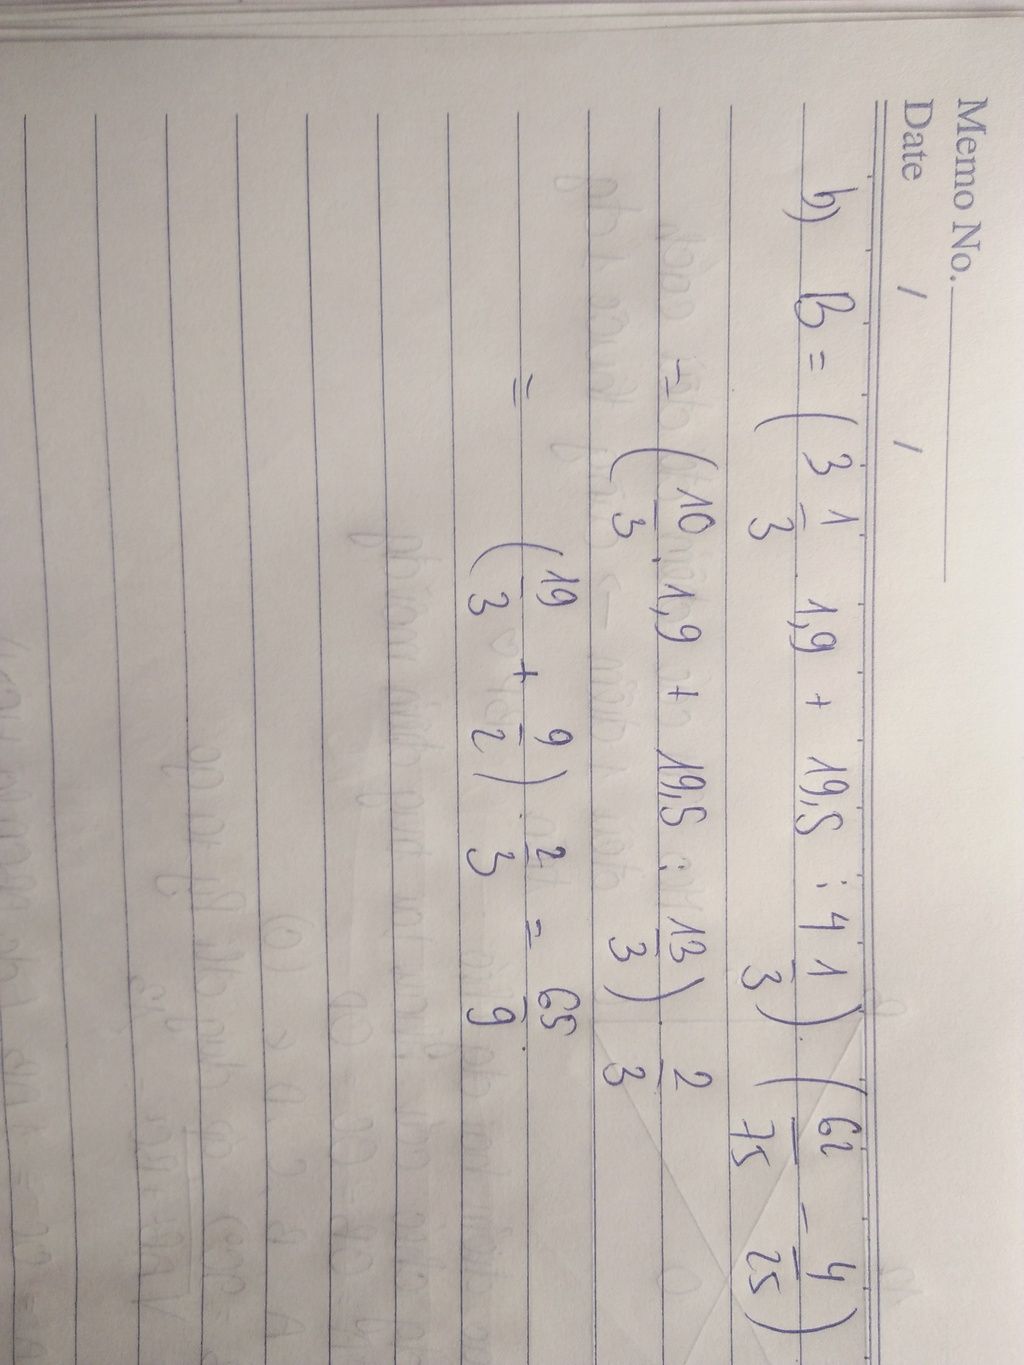 Memo No.
Date / /
b) B = ( 3 1/3 . 1,9 + 19,5 : 4 1/3 ) ( 62/75 - 4/25 )
= ( 10/3 . 1,9 + 19,5 : 13/3 ) 2/3
= ( 19/3 + 9/2 ) . 2/3 = 65/9 .